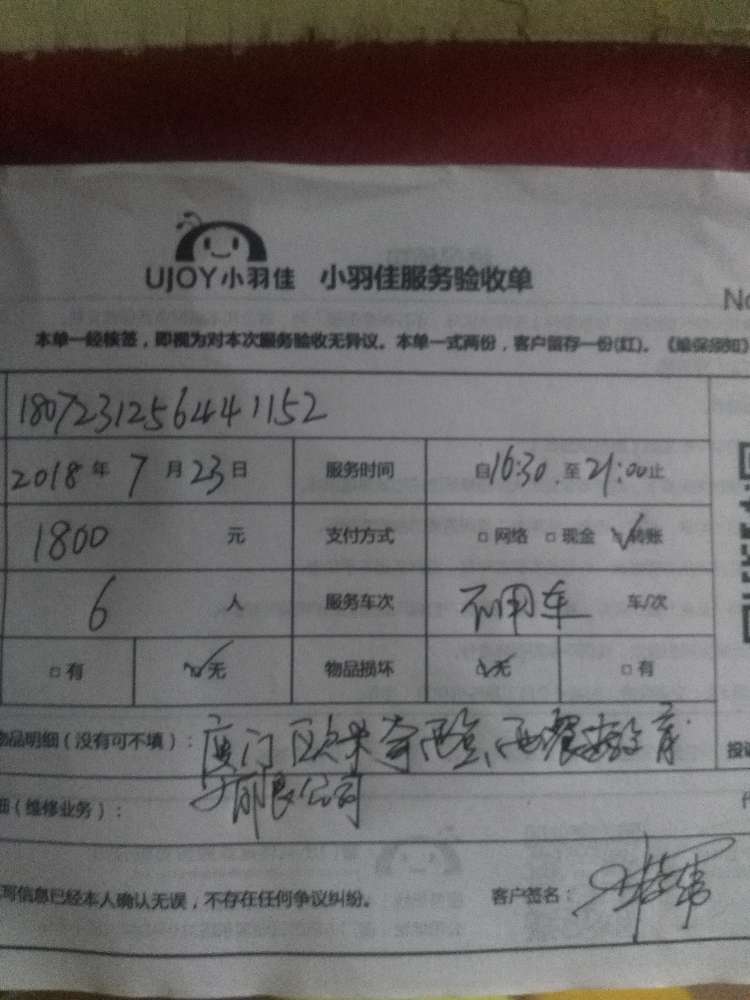 UJOY小羽佳 小羽佳服务验收单
No
本单一经核签，即视为对本次服务验收无异议。本单一式两份，客户留存一份(红)。《维保须知》
1807231256441152
2018年7月23日 服务时间 自16:30.至21:00止
1800 元 支付方式 □网络 □现金 ☑转账
6 人 服务车次 不用车 车/次
□有 ☑无 物品损坏 ☑无 □有
物品明细（没有可不填）： 厦门欧米奇西点西餐教育
有限公司
细（维修业务）：
投诉
写信息已经本人确认无误，不存在任何争议纠纷。 客户签名：